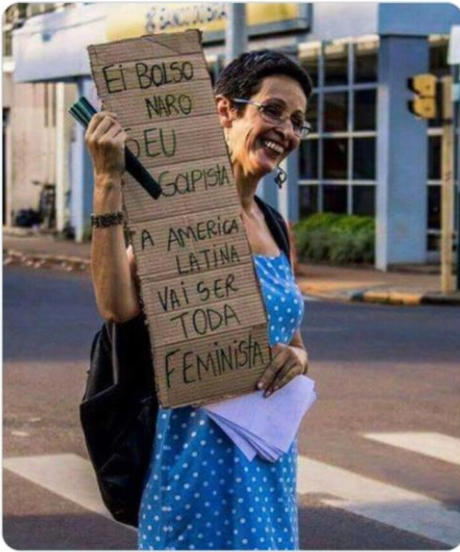 BANCO DO BRASIL
EI BOLSO
NARO
SEU
GOLPISTA
A AMERICA
LATINA
VAI SER
TODA
FEMINISTA